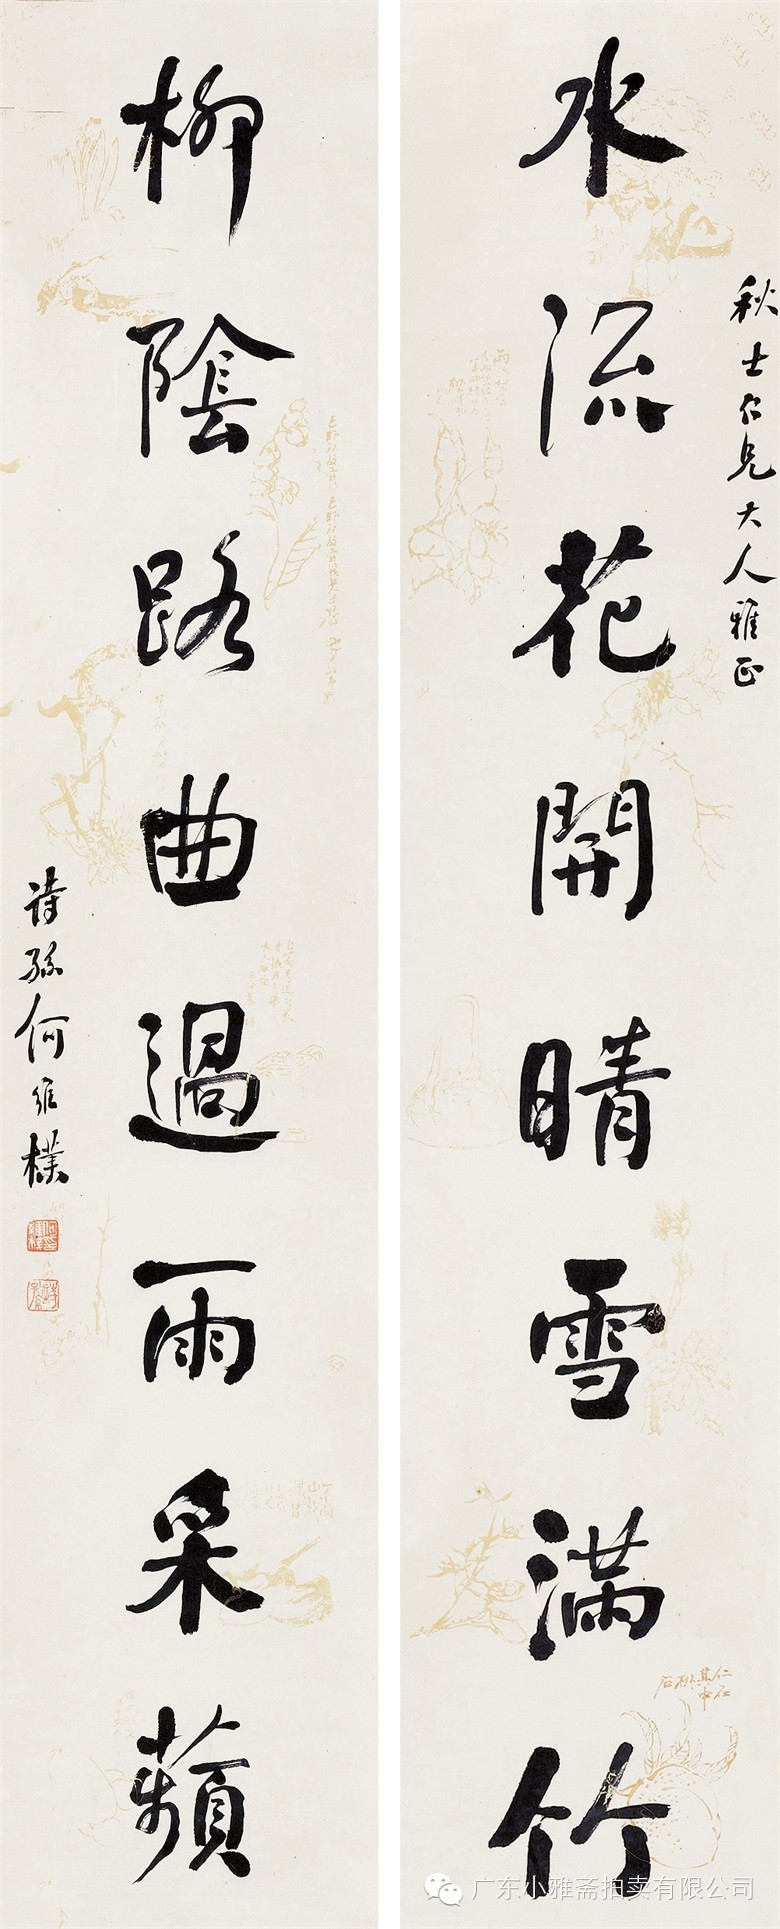 秋士仁兄大人雅正
水流花開晴雪滿竹
柳陰路曲過雨采蘋
詩孫何維樸
广东小雅斋拍卖有限公司